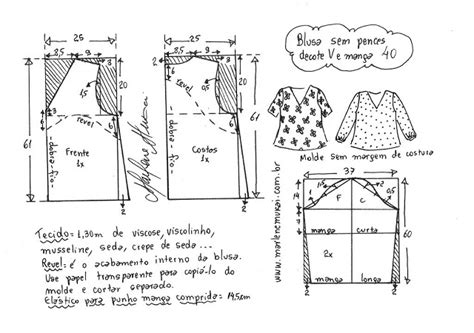 25
25
8,5
9
3
8,5
9
3
2
6
3
6
1,5
20
1,5
20
revel
revel
61
61
dobra - fio
dobra - fio
Frente
1x
Costas
1x
2
2
Marlene Mukai
Blusa sem pences
decote V e manga 40
Molde sem margem de costura
www.marlenemukai.com.br
37
14
F
C
2
0,5
4
manga curta
60
2x
manga longa
2
2
Tecido = 1,30m de viscose, viscolinho,
musseline, seda, crepe de seda ...
Revel = é o acabamento interno da blusa.
Use papel transparente para copiá-lo do
molde e cortar separado.
Elástico para punho manga comprida = 19,5cm